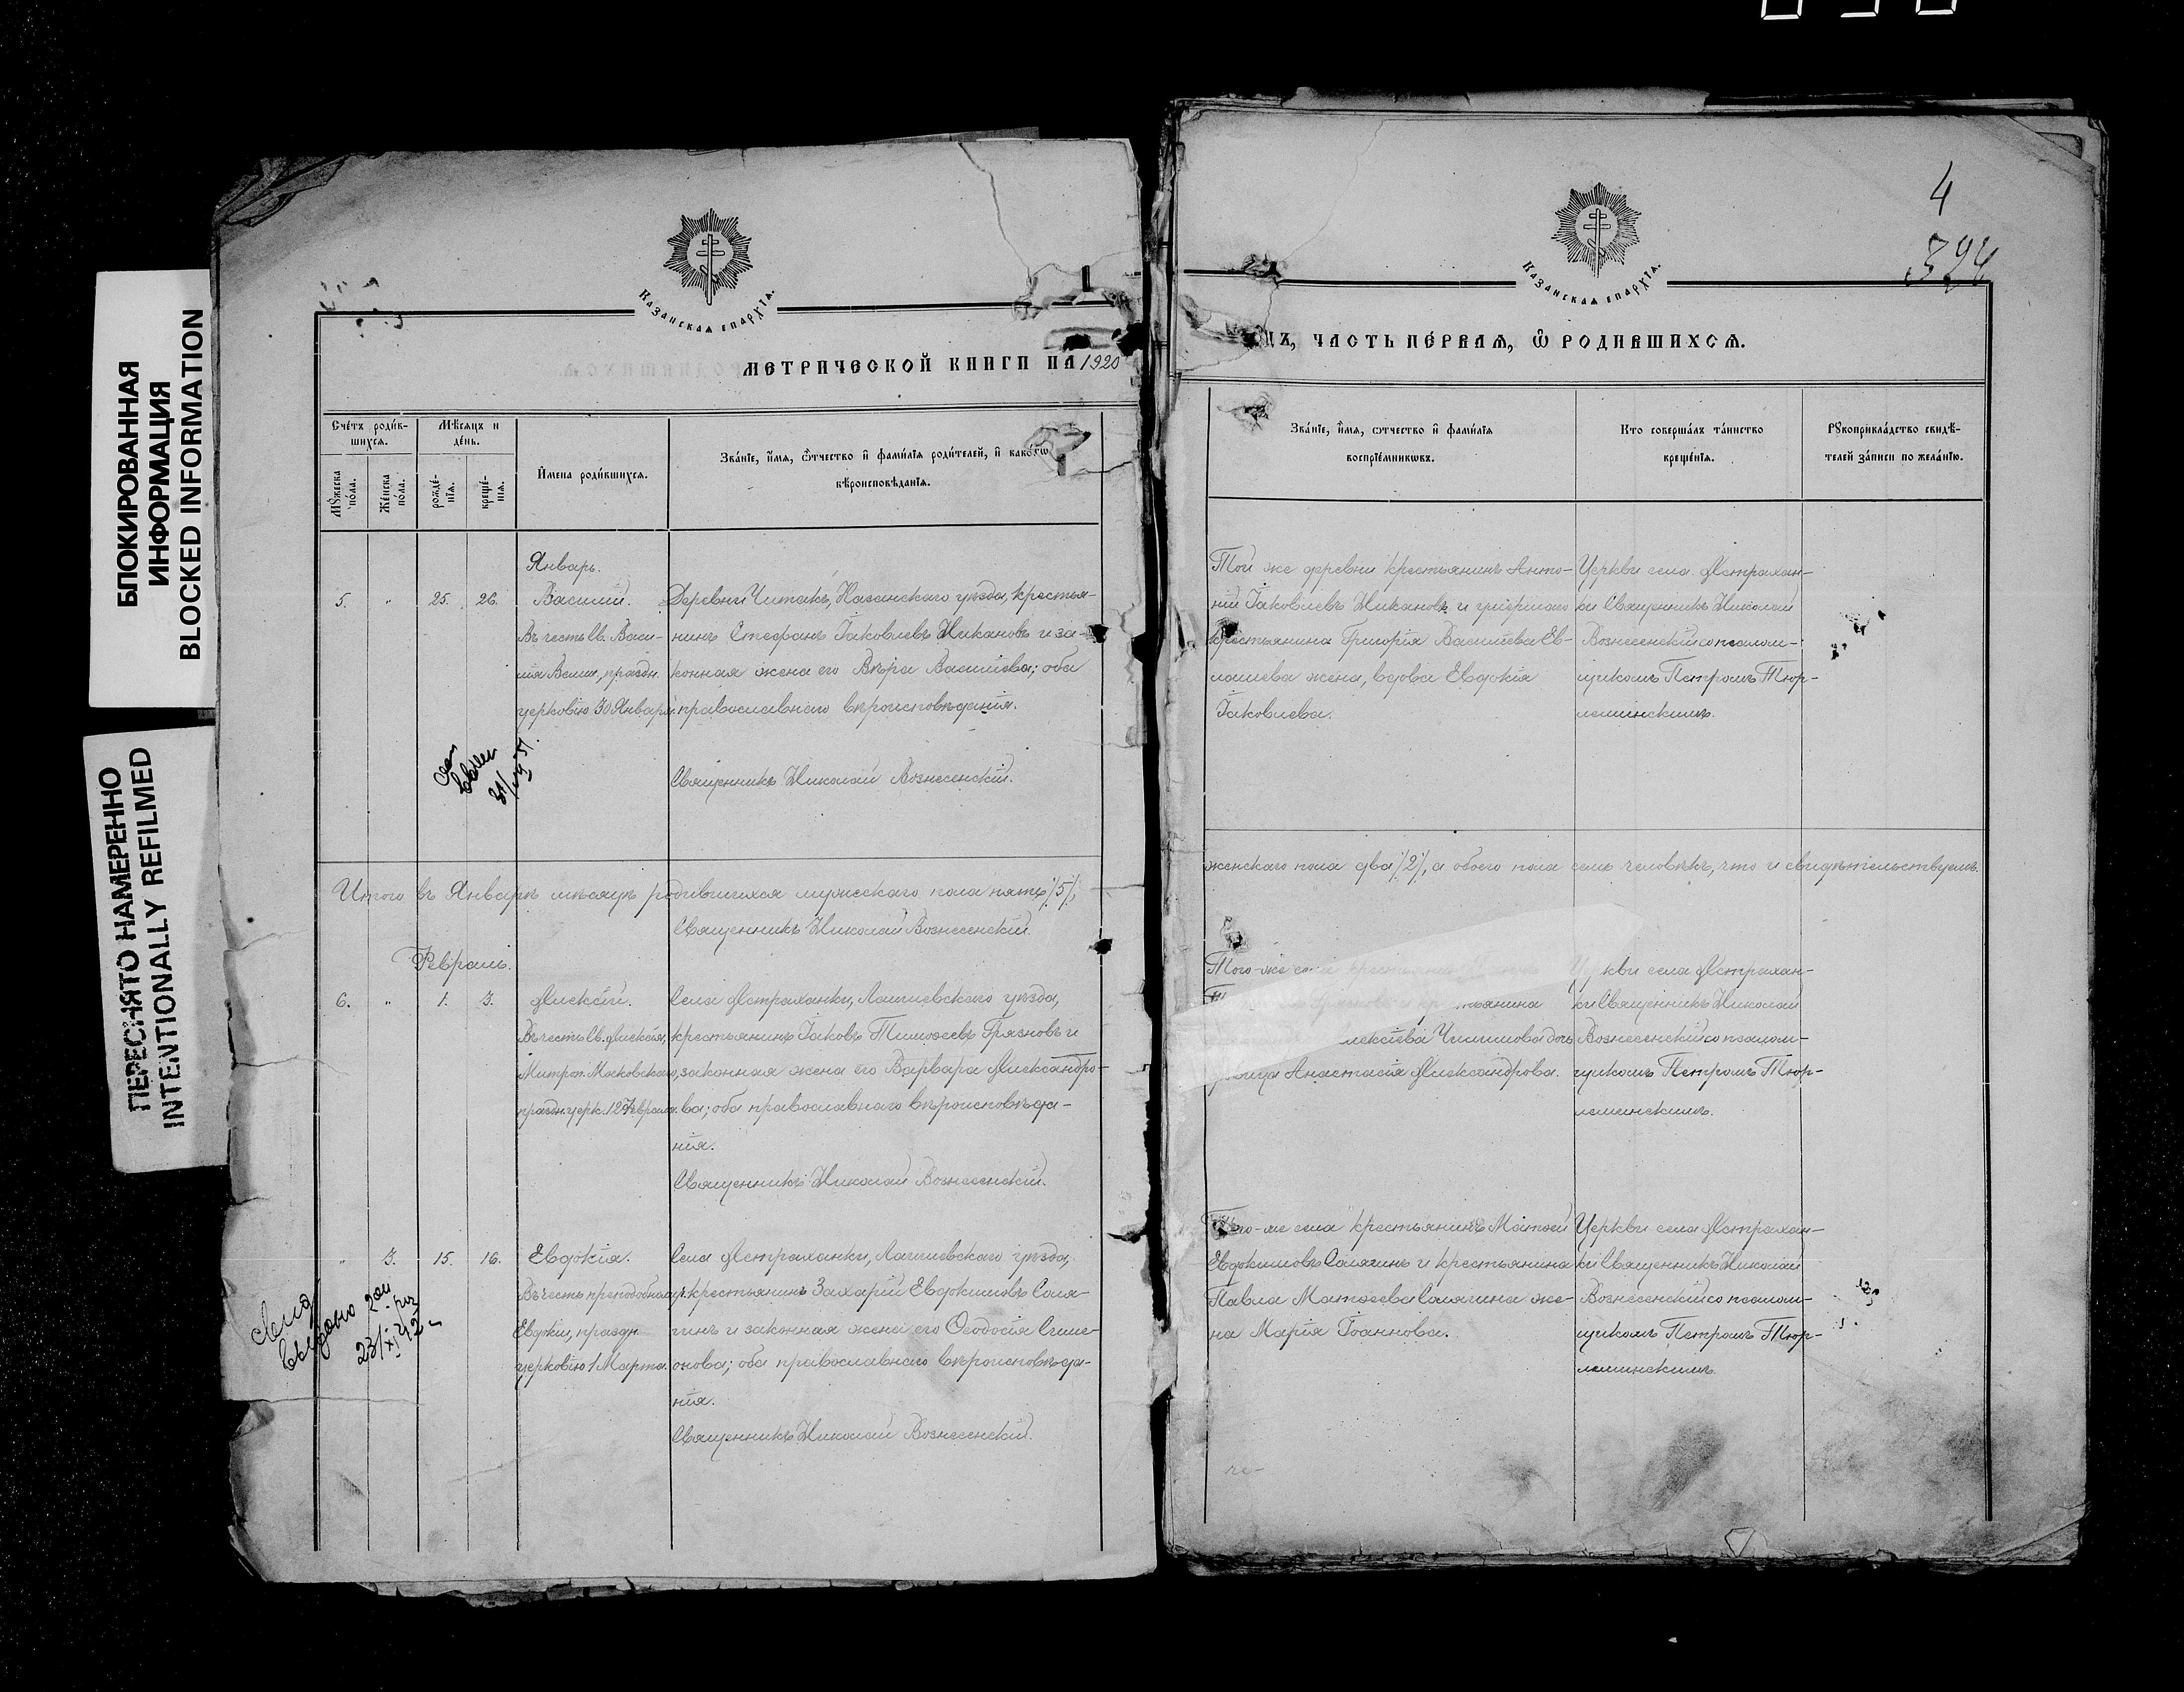 БЛОКИРОВАННАЯ
ИНФОРМАЦИЯ
BLOCKED INFORMATION
ПЕРЕСНЯТО НАМЕРЕННО
INTENTIONALLY REFILMED
Казанская епархїа.
МЕТРИЧЕСКОЙ КНИГИ НА 1920
Счéтъ роди́в-
шихсѧ.
Мѣ́сяцъ и
дéнь.
Мꙋ́жеска
по́ла.
Же́нска
по́ла.
рожде́-
нїѧ.
креще́-
нїѧ.
И҆мена роди́вшихсѧ.
Зва́нїе, и҆́мѧ, ѻ҆́тчество и҆ фами́лїѧ роди́телей, и҆ како́гѡ
вѣроисповѣ́данїѧ.
Январь.
5. " 25. 26. Василій.
Въ честь Св. Васи-
лія Велик., праздн.
церковію 30 Января.
Деревни Читакъ, Казанскаго уѣзда, крестья-
нинъ Стефанъ Іаковлевъ Никановъ и за-
конная жена его Вѣра Васильева; оба
православнаго вѣроисповѣданія.
Священникъ Николай Вознесенскій.
Итого въ Январѣ мѣсяцѣ родившихся мужескаго пола пять /5/,
Священникъ Николай Вознесенскій.
Февраль.
6. " 1. 3. Алексій.
Въ честь Св. Алексія,
Митроп. Московскаго,
праздн. церк. 12 Февраля.
Села Астраханки, Лаишевскаго уѣзда,
крестьянинъ Іаковъ Тимоѳеевъ Грязновъ и
законная жена его Варвара Александро-
ва; оба православнаго вѣроисповѣда-
нія.
Священникъ Николай Вознесенскій.
" 3. 15. 16. Евдокія.
Въ честь преподобномуч.
Евдокіи, праздн.
церковію 1 Марта.
Села Астраханки, Лаишевскаго уѣзда,
крестьянинъ Захарій Евдокимовъ Саля-
гинъ и законная жена его Ѳеодосія Симе-
онова; оба православнаго вѣроисповѣда-
нія.
Священникъ Николай Вознесенскій.
выдано 2ой раз
23/XI 42
4
324
Казанская епархїа.
ЦЪ, ЧАСТЬ ПЕ́РВАѦ, Ѽ РОДИВШИХСѦ.
Зва́нїе, и҆́мѧ, ѻтчество и҆ фами́лїѧ
воспрїе́мникѡвъ.
Кто соверша́лъ та́инство
креще́нїѧ.
Рꙋкоприкла́дство свидѣ́-
телей за́писи по жела́нїю.
Той же деревни крестьянинъ Анто-
ній Іаковлевъ Никановъ и умершаго
крестьянина Григорія Васильева Ев-
лашева жена, вдова Евдокія
Іаковлева.
Церкви села Астрахан-
ки Священникъ Николай
Вознесенскій со псалом-
щикомъ Петромъ Тюр-
леминскимъ.
женскаго пола два /2/, а обоего пола семь человѣкъ, что и свидѣтельствуемъ.
Того-же села
крестьянина
Алексіева Чиликова дочь
дѣвица Анастасія Александрова.
Церкви села Астрахан-
ки Священникъ Николай
Вознесенскій со псалом-
щикомъ Петромъ Тюр-
леминскимъ.
Того-же села крестьянинъ Матѳей
Евдокимовъ Салягинъ и крестьянина
Павла Матѳеева Салягина же-
на Марія Іоаннова.
Церкви села Астрахан-
ки Священникъ Николай
Вознесенскій со псалом-
щикомъ Петромъ Тюр-
леминскимъ.